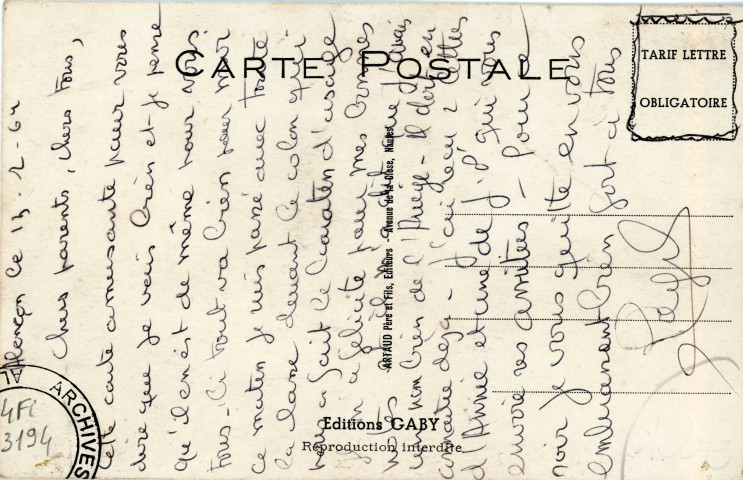 CARTE POSTALE
TARIF LETTRE
OBLIGATOIRE
Alençon le 13-2-64
Chers parents, chers tous,
Cette carte amusante pour vous
dire que je vais bien et je pense
qu'il en est de même pour vous
tous. Ici tout va bien pour moi
ce matin je suis passé avec toute
la classe devant le colon qui
nous a fait le
a félicité pour mes bonnes
notes
un bien de l'Ariège - Il
déjà - J'ai reçu 2 lettres
d'Annie et une de J.P. qui vous
envoie ses amitiés - Pour ce
soir je vous quitte en vous
embrassant bien fort à tous
ARTAUD Père et Fils, Editeurs - Avenue de la Close, Nantes
Editions GABY
Reproduction interdite
ARCHIVES
4Fi
3194